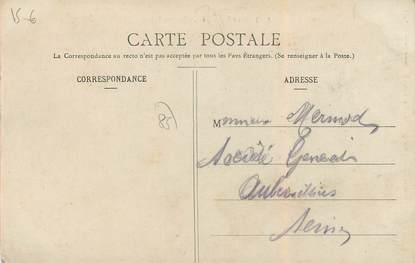 15-6
CARTE POSTALE
La Correspondance au recto n'est pas acceptée par tous les Pays Étrangers. (Se renseigner à la Poste.)
CORRESPONDANCE
ADRESSE
85
Monsieur Mermod
Société Generale
Aubervilliers
Seine